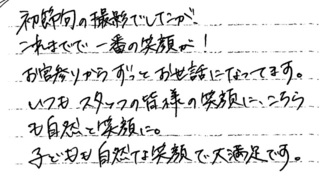 初節句の撮影でしたが、
これまでで一番の笑顔が！
お宮参りからずっとお世話になってます。
いつもスタッフの皆様の笑顔に、こちら
も自然と笑顔に。
子どもも自然な笑顔で大満足です。